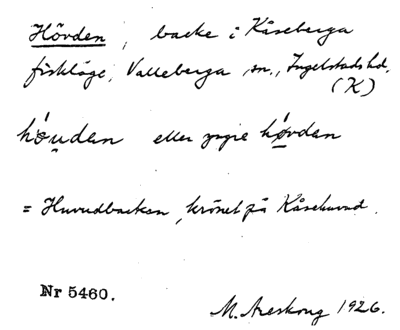 Hövden, backe i Kåseberga
fiskläge, Valleberga sn., Ingelstads hd.
(K)
hǫ́u̯dan eller yngre hǿvdan
= Huvudbacken, krönet på Kåsehuvud.
Nr 5460.
M. Areskoug 1926.